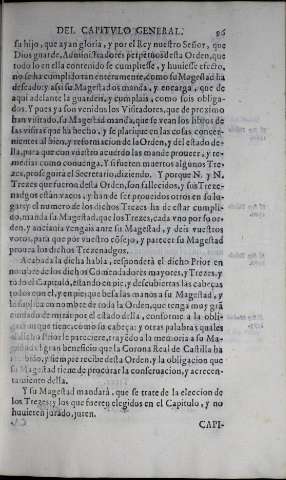 DEL CAPITVLO GENERAL. 96
su hijo, que ayan gloria, y por el Rey nuestro Señor, que
Dios guarde, Administradores perpetuos desta Orden, que
todo lo en ella contenido se cumpliesse, y huuiesse efecto,
no se ha cumplido tan enteramente, como su Magestad ha
desseado: y assi su Magestad os manda, y encarga, que de
aqui adelante la guardeis, y cumplais, como sois obliga-
dos. Y pues ya son venidos los Visitadores, que de proximo
han visitado, su Magestad manda, que se vean los libros de
las visitas que ha hecho, y se platique en las cosas concer-
nientes al bien, y reformacion de la Orden, y del estado de-
lla, para que con vuestro acuerdo las mande proueer, y re-
mediar como conuenga. Y si fueren muertos algunos Tre-
zes, proseguira el Secretario, diziendo. Y porque N. y N.
Trezes que fueron desta Orden, son fallecidos, y sus Treze-
nadgos estàn vacos, y han de ser proueidos otros en su lu-
gar: y el numero de los dichos Trezes ha de estar cumpli-
do, manda su Magestad, que los Trezes, cada vno por so or-
den, y anciania vengais ante su Magestad, y deis vuestros
votos, para que por vuestro cõsejo, y parecer su Magestad
prouea los dichos Trezenadgos.
Acabada la dicha habla, responderà el dicho Prior en
nombre de los dichos Comendadores mayores, y Trezes, y
todo el Capitulo, estando en pie, y descubiertas las cabeças
todos con el, y en pie, que besa las manos a su Magestad, y
le suplica en nombre de toda la Orden, que tenga muy gră
cuidado de mirar por el estado della, conforme a la obli-
gacion que tiene, como su cabeça: y otras palabras quales
al dicho Prior le pareciere, trayẽdo a la memoria a su Ma-
gestad el gran beneficio que la Corona Real de Castilla ha
recibido, y siempre recibe desta Orden, y la obligacion que
su Magestad tiene de procurar la conseruacion, y acrecen-
tamiento della.
Y su Magestad mandarà, que se trate de la eleccion de
los Trezes: y los que fueren elegidos en el Capitulo, y no
huuieren jurado, juren.
CAPI-